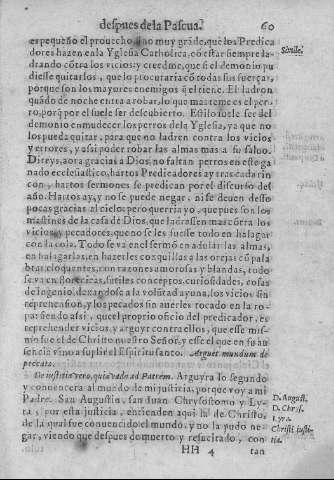 despues de la Pascua. 60
es pequeño el prouecho, sino muy grãde, que los Predica
dores hazen en la Yglesia Catholica, cõ estar siempre la-
drando cõtra los vicios: y creedme, que si el demonio pu
diesse quitarlos, que lo procuraria cõ todas sus fuerças,
porque son los mayores enemigos q̃ el tiene. El ladron
quãdo de noche entra a robar, lo que mas teme es el per-
ro, porq̃ por el suele ser descubierto. Esto suele ser del
demonio enmudecer los perros de la Yglesia, ya que no
los pueda quitar, para que no ladren contra los vicios
y errores, y assi poder robar las almas mas a su saluo.
Direys, aora gracias a Dios, no faltan perros en este ga
nado ecclesiastico, hartos Predicadores ay tras cada rin
con, hartos sermones se predican por el discurso del
año. Hartos ay, y no se puede negar, ni se deuen desso
pocas gracias al cielo: pero querria yo, que pues son los
mastines de la casa de Dios, que ladrassen mas cõtra los
vicios y pecadores, que no se les fuesse todo en halagar
con la cola. Todo se va en el sermõ en adular las almas,
en halagarlas, en hazerles coxquillas a las orejas cõ pala
bras eloquentes, con razones amorosas y blandas, todo
se va en florezicas, sutiles conceptos, curiosidades, cosas
de ingenio, dexandose a la volũtad ayuna, los vicios sin
reprehension, y los pecados sin auerles tocado en la ro-
pa: siendo assi, que el proprio oficio del predicador, es
reprehender vicios, y arguyr contra ellos, que esse mis-
mo fue el de Christo nuestro Señor, y esse el que en su au
sencia vino a suplir el Espiritu santo. Arguet mundum de
peccato.
De iustitia vero, quia vado ad Patrem. Arguyra lo segundo
y conuencera al mundo de mi justicia, porque voy a mi
Padre. San Augustin, san Iuan Chrysostomo y Ly-
ra, por esta justicia, entienden aqui la de Christo,
de la qual fue conuencido el mundo, y no la pudo ne-
gar, viendo que despues de muerto y resucitado, con
HH 4 tan
Simile.
D. August.
D. Chris.
Lyra.
Christi iusti-
tia.